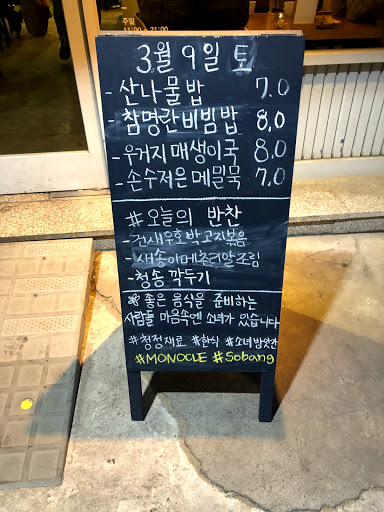 주말
11:00 ~ 21:00
3월 9일 토
- 산나물밥 7.0
- 참명란비빔밥 8.0
- 우거지매생이국 8.0
- 손수저은메밀묵 7.0
# 오늘의 반찬
- 건새우호박고지볶음
- 새송이메추리알조림
- 청송 깍두기
※ 좋은 음식을 준비하는
사람들 마음속엔 소녀가 있습니다
#청정재료 #한식 #소녀방앗간
#MONOCLE #Sobang